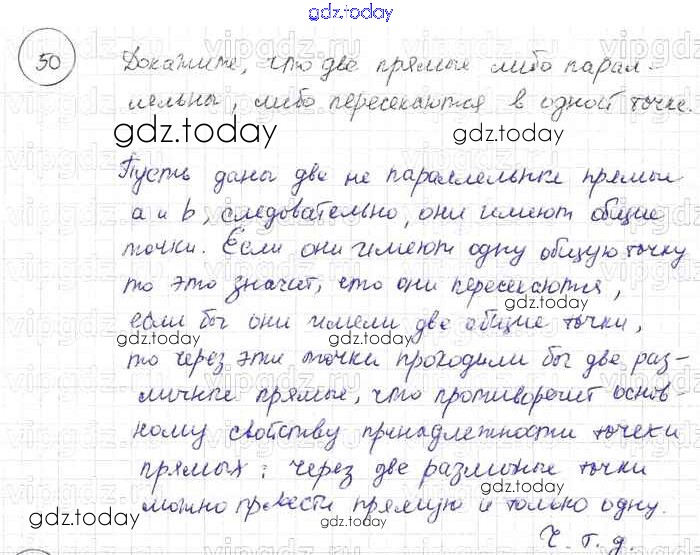 gdz.today
50
Докажите, что две прямые либо парал-
лельны, либо пересекаются в одной точке.
gdz.today gdz.today
Пусть даны две не параллельные прямые
а и b, следовательно, они имеют общие
точки. Если они имеют одну общую точку
то это значит, что они пересекаются,
gdz.today
если бы они имели две общие точки,
gdz.today
то через эти точки проходили бы две раз-
личные прямые, что противоречит основ-
ному свойству принадлежности точек и
прямых: через две различные точки
gdz.today
можно провести прямую и только одну.
gdz.today
Ч. т. д.